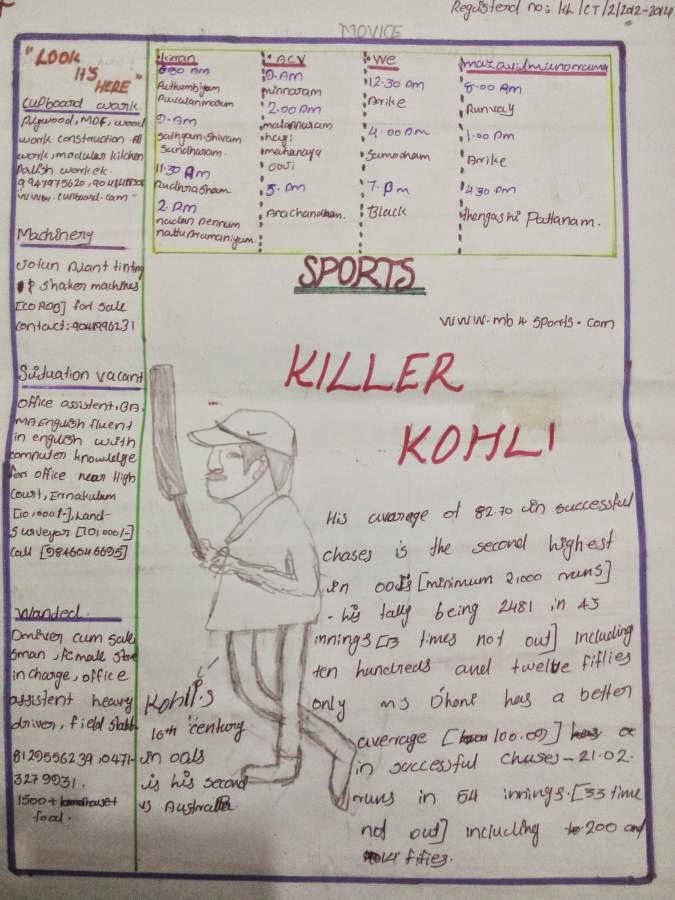 Registerd no: KL/CT/2/2012-2014
MOVICE
"LOOK
IT'S
HERE"
cupboard work
plywood, MDF, wood
work construction All
work, modular kitchen
palish work etc.
www.cupboard.com
Machinery
Jotun plant tinting
& shaker machines
[COROB] for sale
contact:
Situation vacant
Office assistent, BA,
MA English fluent
in english with
computer knowledge
for office near High
Court, Ernakulam
[10,000/-], Land-
Surveyor [10,000/-]
call [9846046695]
Wanted
Driver cum sale
sman, female store
in charge, office
assistent heavy
driver, field staff
8129556239, 0471-
3279931.
1500+
food.
kiran
6:30 Am
Puthumbiyam
Puvalanmarum
9.Am
Sathyam Shivam
Sundharam.
11.30 Am
Rudhrasham
2.Pm
nadan Pennum
nattu Pramaniyum.
ACV
9.Am
minnaram
2.00 Pm
malappuram
haji
mahanaya
Joji
5.Pm
Arachandhan.
We
12.30 Pm
Arike
4.00 Pm
Sumodham
7.Pm
Black
mazavilmanorama
8.00 Am
Runvay
1.00 Pm
Arike
4.30 Pm
thengashi Pattanam.
SPORTS
www.mb4sports.com
KILLER
KOHLI
His avarage of 82.70 in successful
chases is the second highest
in ODIs [minimum 2,000 runs]
- his tally being 2481 in 43
innings [13 times not out] including
ten hundreds and twelve fifties
only ms Dhoni has a better
average [100.09]
in successful chases - 21.02.
runs in 54 innings. [33 time
not out] including 200 and
fifies.
Kohli's
16th century
in odls
is his second
vs Australia